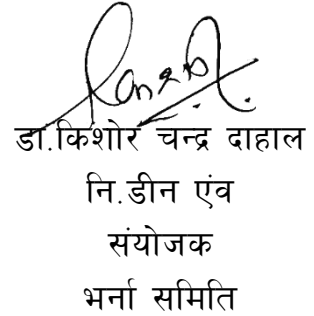 डा.किशोर चन्द्र दाहाल
नि.डीन एंव
संयोजक
भर्ना समिति